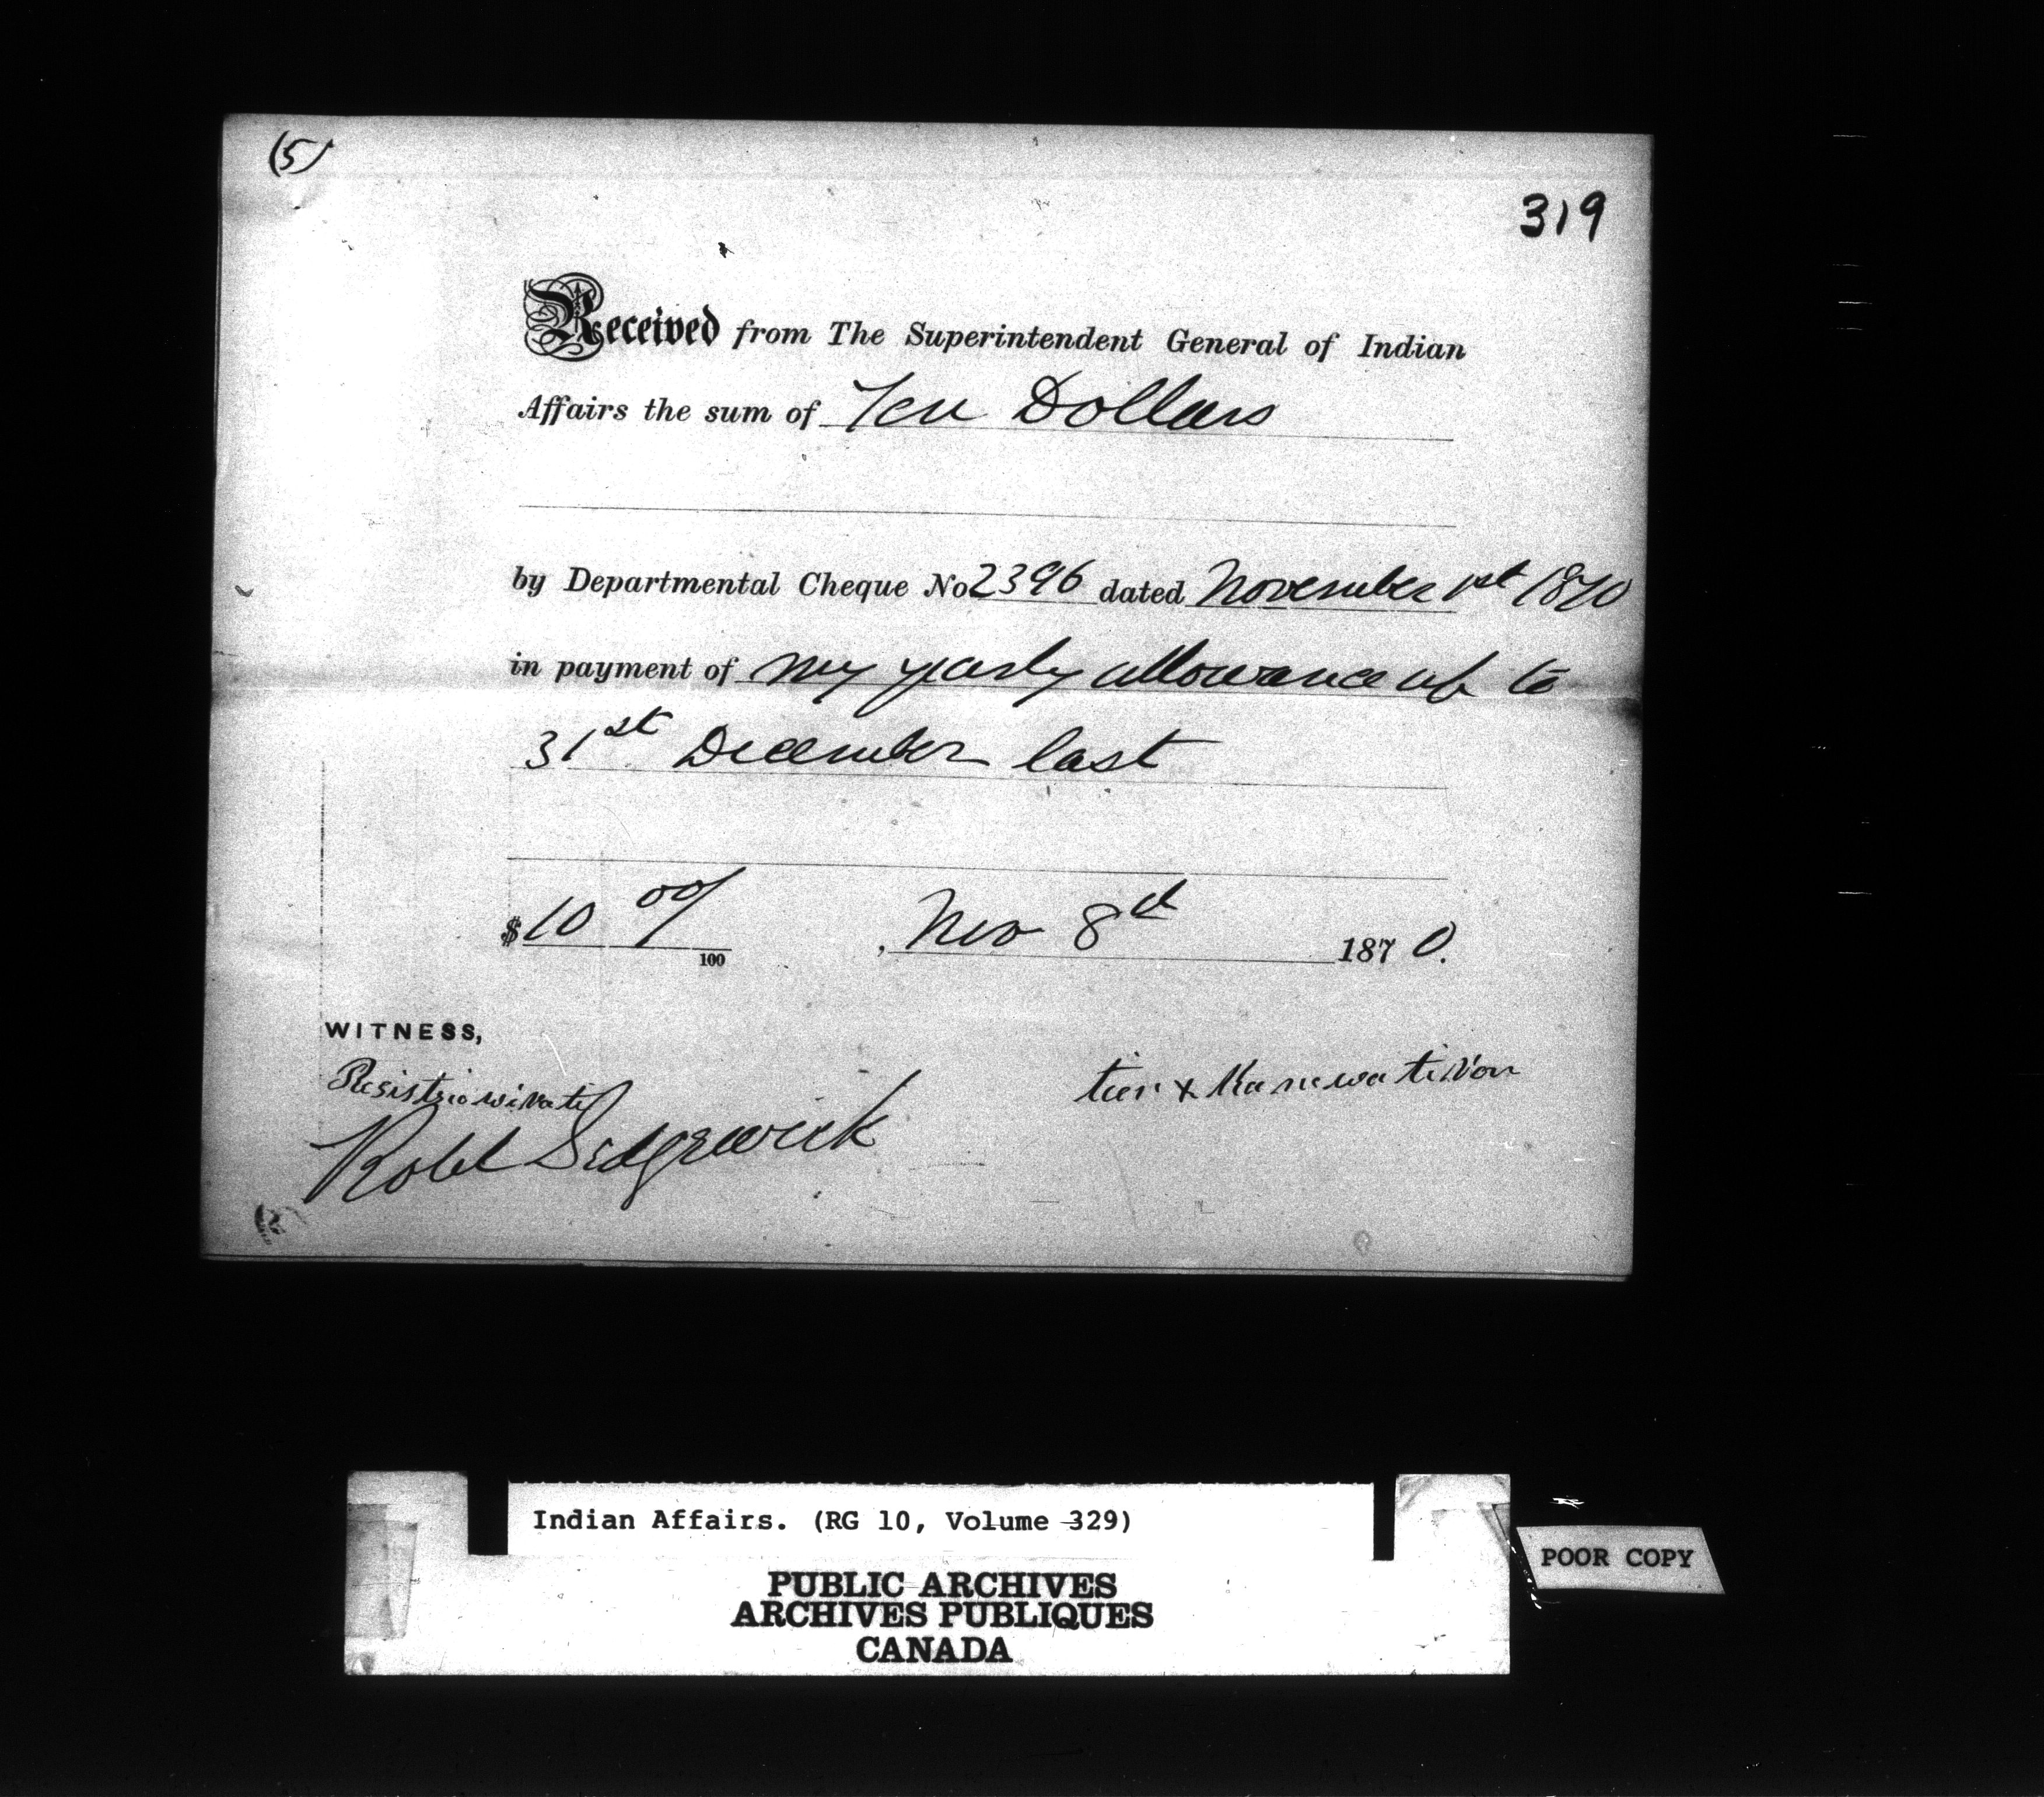 (5)
319
Received from The Superintendent General of Indian
Affairs the sum of Ten Dollars
by Departmental Cheque No 2396 dated November 1st 1870
in payment of my yearly allowance up to
31st December last
$ 10 00/100 , Nov 8th 1870.
WITNESS,
tier x
Robt Sedgewick
Indian Affairs. (RG 10, Volume 329)
POOR COPY
PUBLIC ARCHIVES
ARCHIVES PUBLIQUES
CANADA